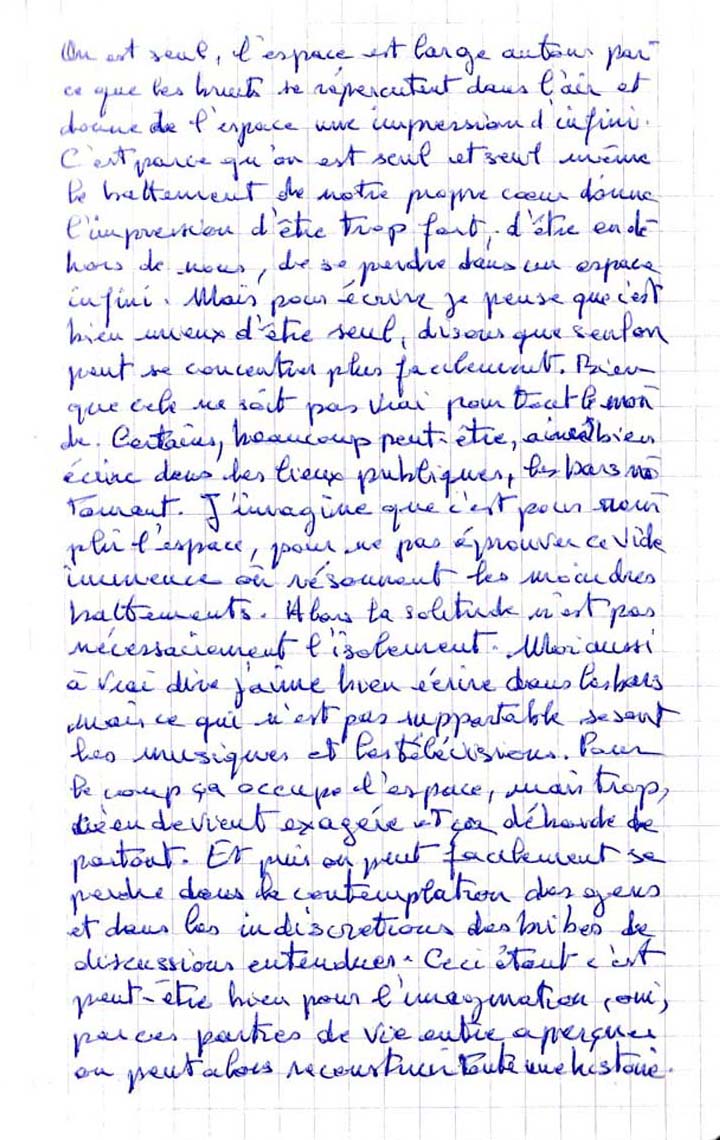 On est seul, l'espace est large autour par-
ce que les bruits se répercutent dans l'air et
donne de l'espace une impression d'infini.
C'est parce qu'on est seul et seul même
le battement de notre propre cœur donne
l'impression d'être trop fort, d'être en dé-
hors de nous, de se perdre dans un espace
infini. Mais pour écrire je pense que c'est
bien mieux d'être seul, disons que seul on
peut se concentrer plus facilement. Bien
que cela ne soit pas vrai pour tout le mon-
de. Certains, beaucoup peut-être, aiment bien
écrire dans les lieux publiques, les bars no-
tamment. J'imagine que c'est pour
plir l'espace, pour ne pas éprouver ce vide
immence où résonnent les moindres
battements. Alors la solitude n'est pas
nécessairement l'isolement. Moi aussi
à vrai dire j'aime bien écrire dans les bars
mais ce qui n'est pas supportable se sont
les musiques et les télévisions. Pour
le coup ça occupe l'espace, mais trop,
en devient exagéré et ça déborde de
partout. Et puis on peut facilement se
perdre dans la contemplation des gens
et dans les indiscretions des bribes de
discussions entendues. Ceci étant c'est
peut-être bien pour l'imagination, oui,
par ces parties de vie entre aperçues
on peut alors reconstruire toute une histoire.